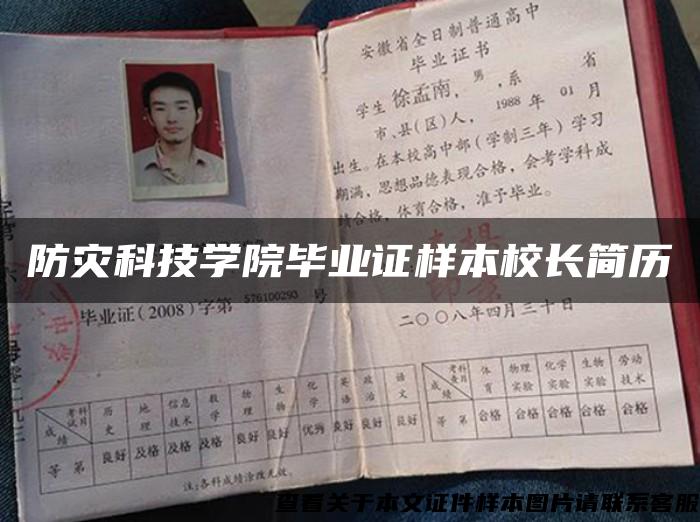 安徽省全日制普通高中
毕业证书
学生 徐孟南，男，系 省
市、县(区)人，1988年 01 月
出生。在本校高中部(学制三年)学习
期满，思想品德表现合格，会考学科成
绩合格，体育合格，准予毕业。
防灾科技学院毕业证样本校长简历
毕业证(2008)字第 576100293 号
二〇〇八年四月三十日
考试科目 历史 地理 信息技术 数学 物理 生物 化学 英语 政治 语文
成绩
等 第 良好 及格 及格 及格 良好 良好 优秀 良好 良好 良好
注:各科成绩涂改无效。
考查科目 体育 物理实验 化学实验 生物实验 劳动技术
成绩
等 第 合格 合格 合格 合格 合格
查看关于本文证件样本图片请联系客服